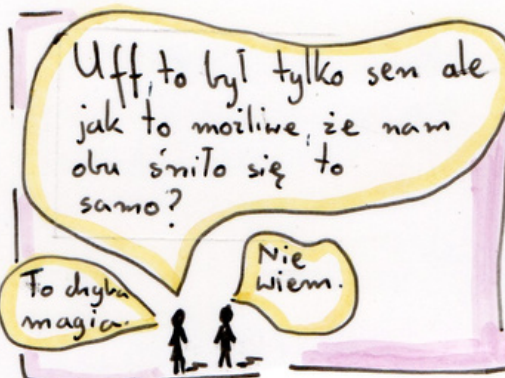 Uff, to był tylko sen ale
jak to możliwe, że nam
obu śniło się to
samo?
To chyba
magia.
Nie
wiem.